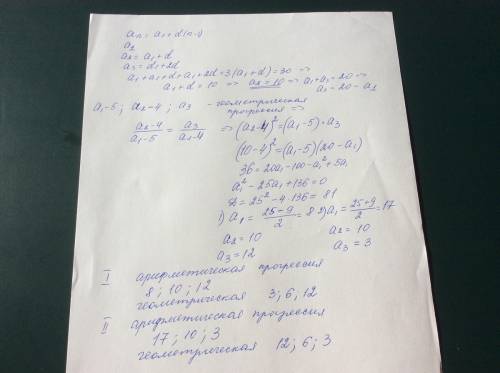 an = a1 + d(n-1)
a2
a2 = a1 + d
a3 = d1 + 2d
a1 + a1 + d + a1 + 2d = 3(a1 + d) = 30 =>
a1 + d = 10 => a2 = 10 => a1 + a3 = 20 =>
a3 = 20 - a1
a1 - 5 ; a2 - 4 ; a3 - геометрическая
прогрессия =>
(a2-4)/(a1-5) = a3/(a2-4) => (a2-4)² = (a1-5)·a3
(10-4)² = (a1-5)(20-a1)
36 = 20a1 - 100 - a1² + 5a1
a1² - 25a1 + 136 = 0
D = 25² - 4·136 = 81
1) a1 = (25+9)/2 = 8 2) a1 = (25+9)/2 = 17
a2 = 10 a2 = 10
a3 = 12 a3 = 3
I арифметическая прогрессия
8 ; 10 ; 12
геометрическая 3 ; 6 ; 12
II арифметическая прогрессия
17 ; 10 ; 3
геометрическая 12 ; 6 ; 3